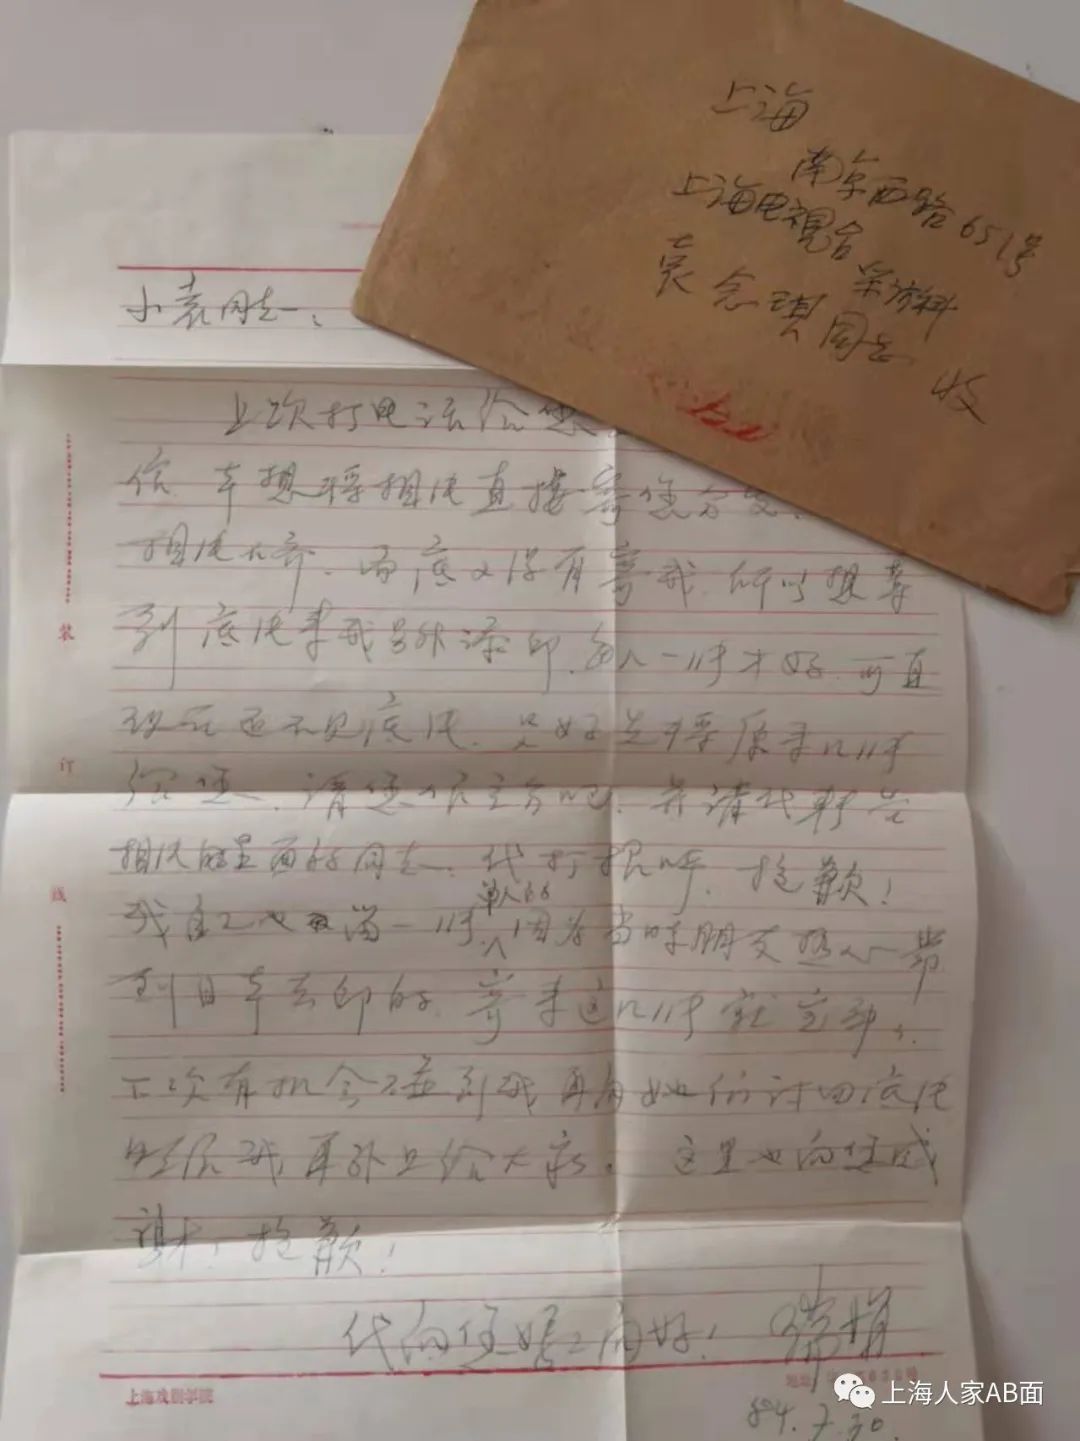 上海
南京西路651号
上海电视台
袁念琪同志
收
小袁同志：
上次打电话给您
信 本想将相片直接寄您分发、
相片不齐、而底又没有寄我、所以想等
到底片来我另外添印、每人一张才好、可直
现在还不见底片、只好先将原来几张
给您、请您作主分吧、并请代转告
相片的里面的同志、代打招呼、抱歉！
我自己也留一张单人的 因为当时朋友热心带
到日本去印的、寄来这几张就
下次有机会碰到我再向她们讨回底片
然后我再补上给大家。这里也向您感
谢！抱歉！
代向您 问好！
装
订
线
上海戏剧学院
84.7.30.
上海人家AB面